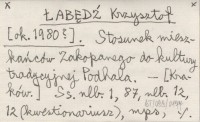 ŁABĘDŹ Krzysztof
[ok. 1980 r.]. Stosunek miesz-
kańców Zakopanego do kultury
tradycyjnej Podhala. – [Kra-
ków.] Ss. nlb. 1, 87, nlb. 12,
12 (kwestionariusz), mps,